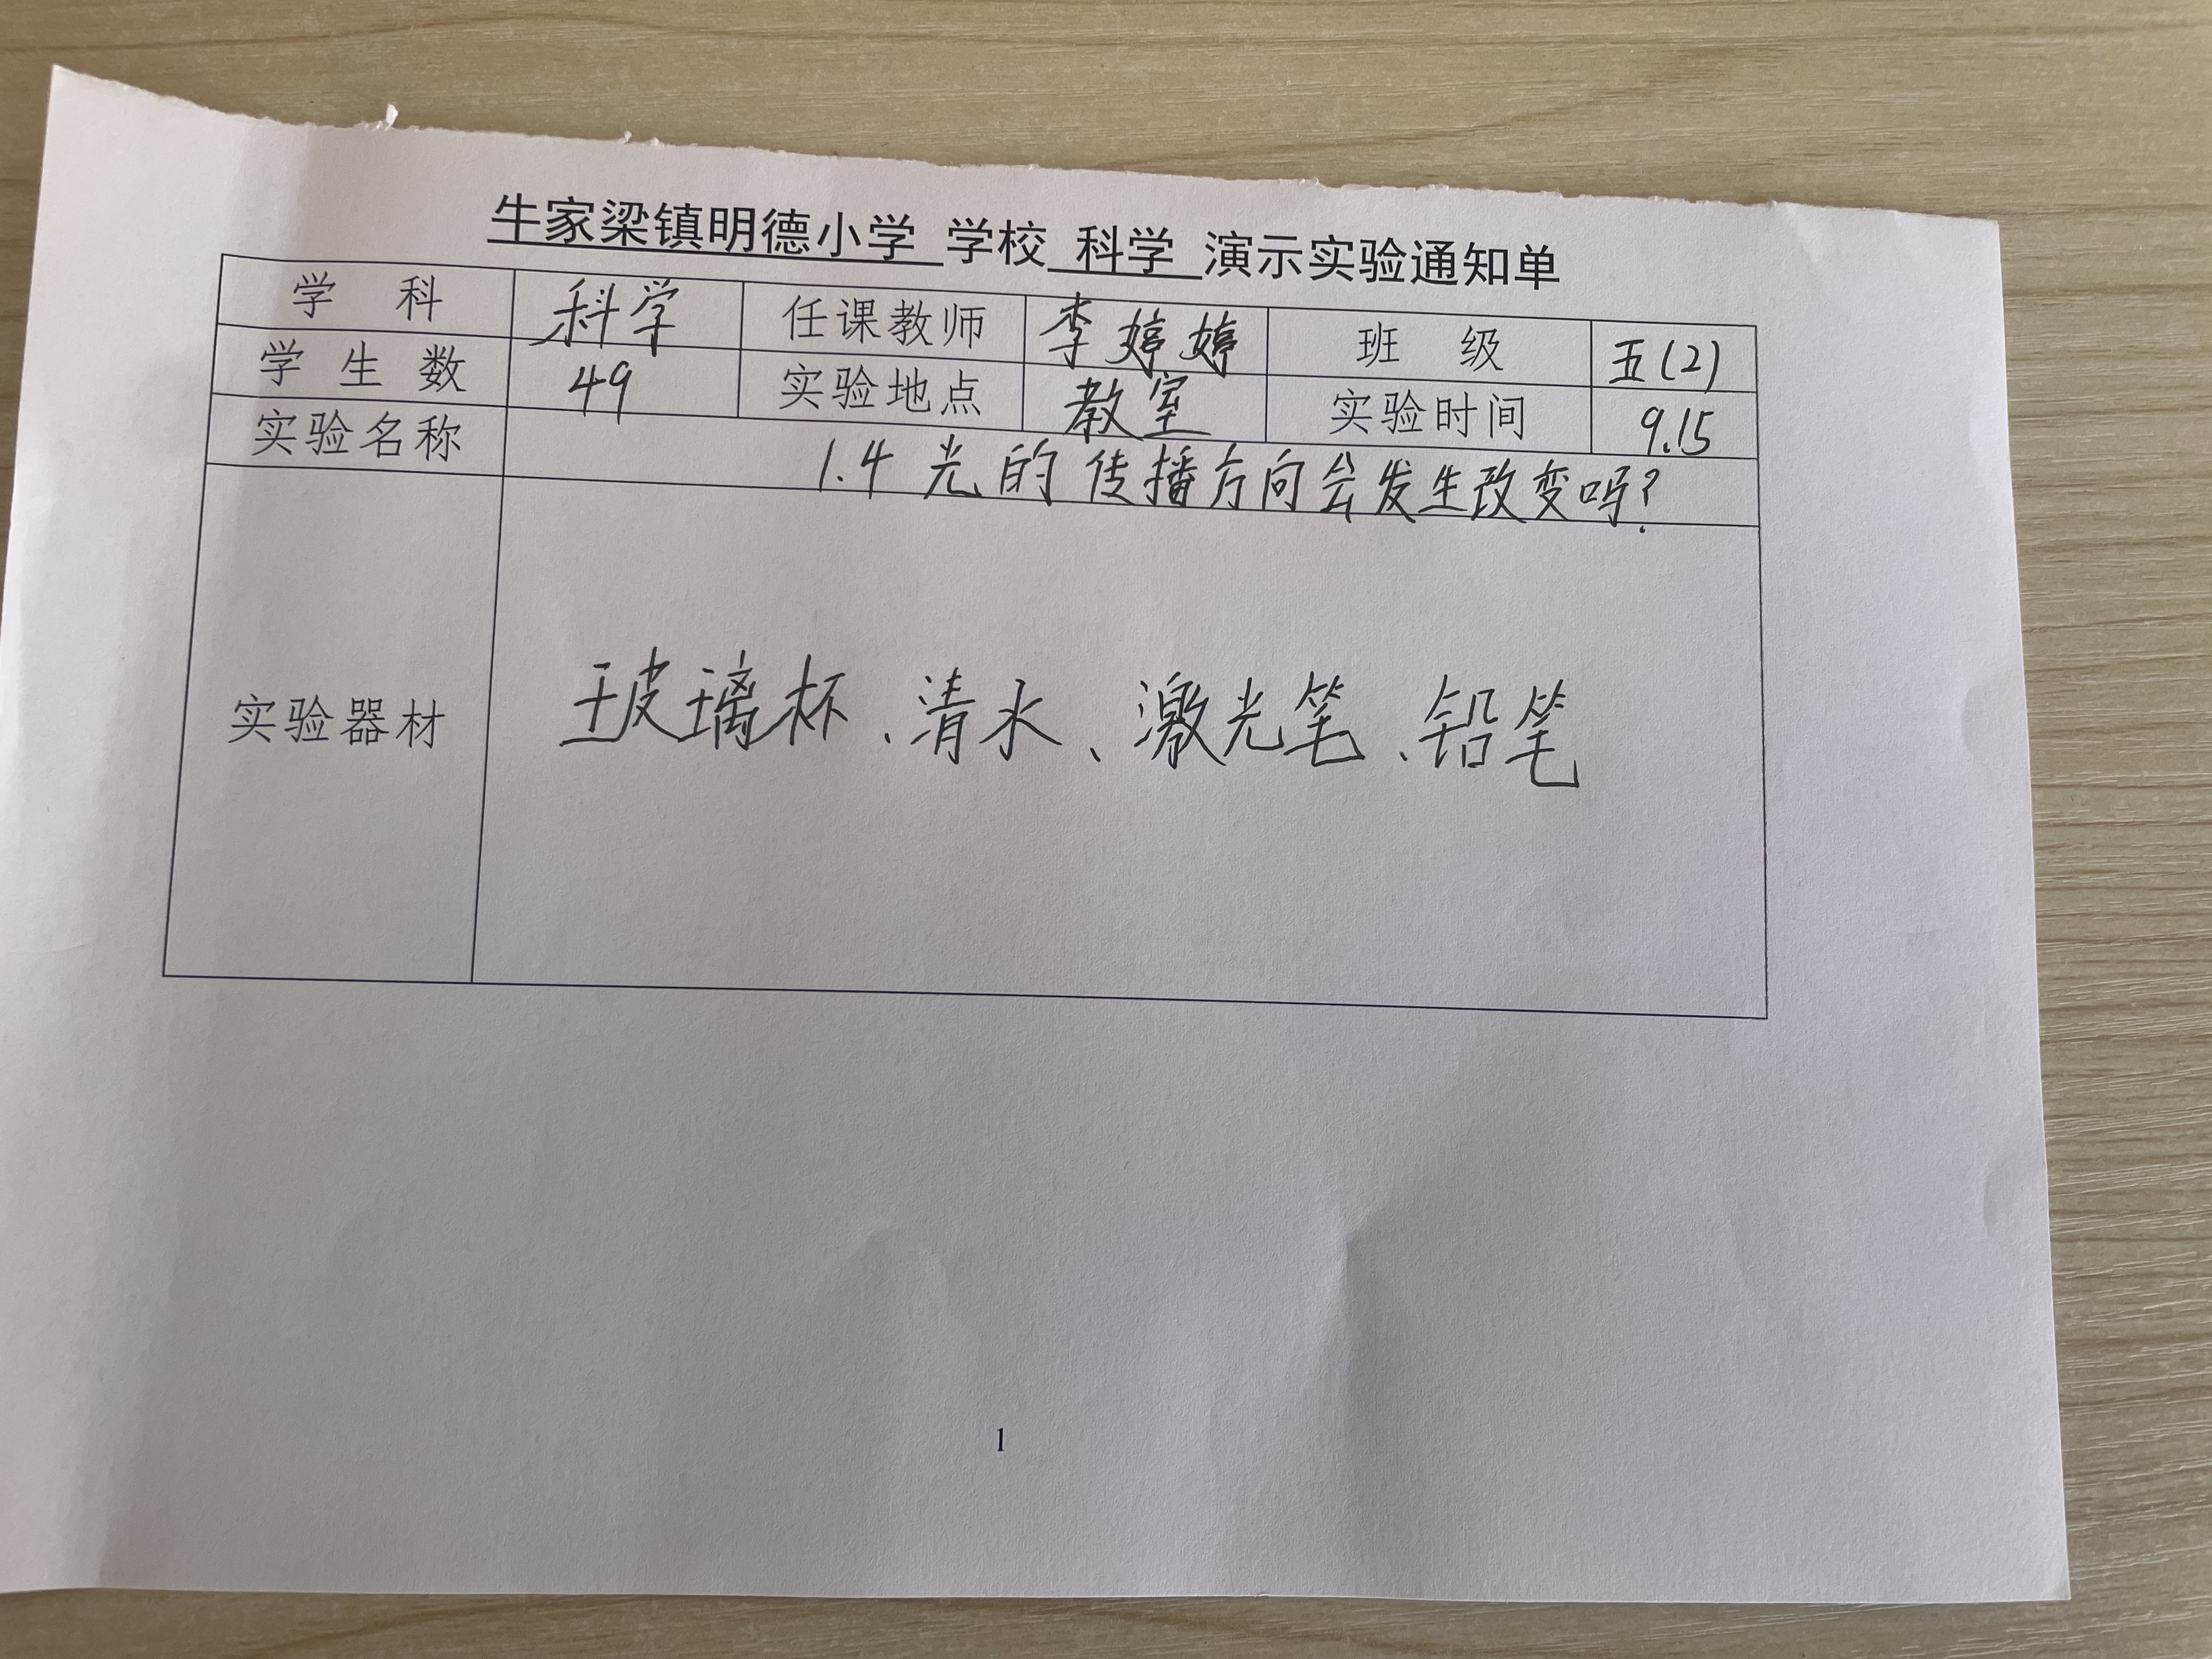 牛家梁镇明德小学 学校 科学 演示实验通知单
学 科 科学 任课教师 李婷婷 班 级 五(2)
学 生 数 49 实验地点 教室 实验时间 9.15
实验名称 1.4 光的传播方向会发生改变吗?
实验器材 玻璃杯、清水、激光笔、铅笔
1